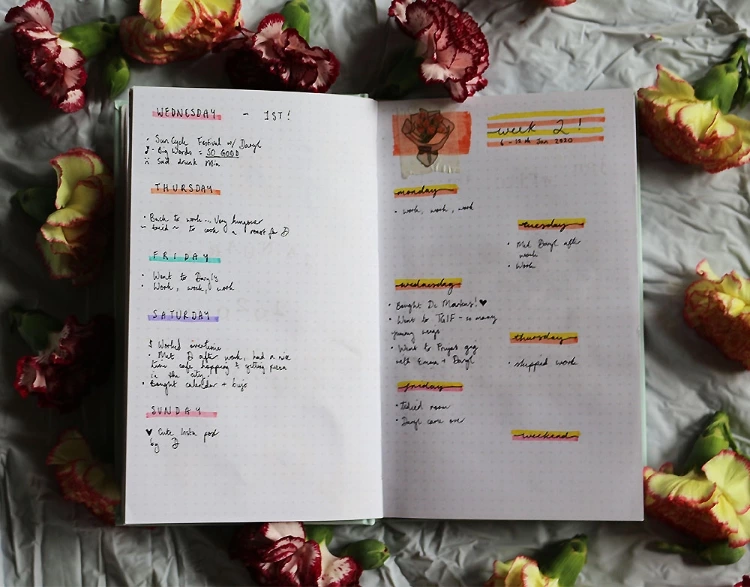 WEDNESDAY - 1ST!
• Sun Cycle Festival w/ Daryl
Big Words = SO GOOD
Sad drunk Mia
THURSDAY
• Back to work... very hungover
to cook a roast for D
FRIDAY
• Went to Daryl's
• Work, work, work
SATURDAY
$ Worked overtime
• Met D after work, had a nice
time cafe hopping & getting pizza
in the city.
• Bought calendar + bujo
SUNDAY
♥ Cute Insta post
by D
week 2!
6 - 12th Jan 2020
monday
• work, work, work
tuesday
• Met Daryl after
work
• Work
wednesday
• Bought Dr Martens! ♥
• Went to - so many
yummy
• Went to gig
with Emma + Daryl
thursday
• skipped work
friday
• Tidied room
• Daryl came over
weekend